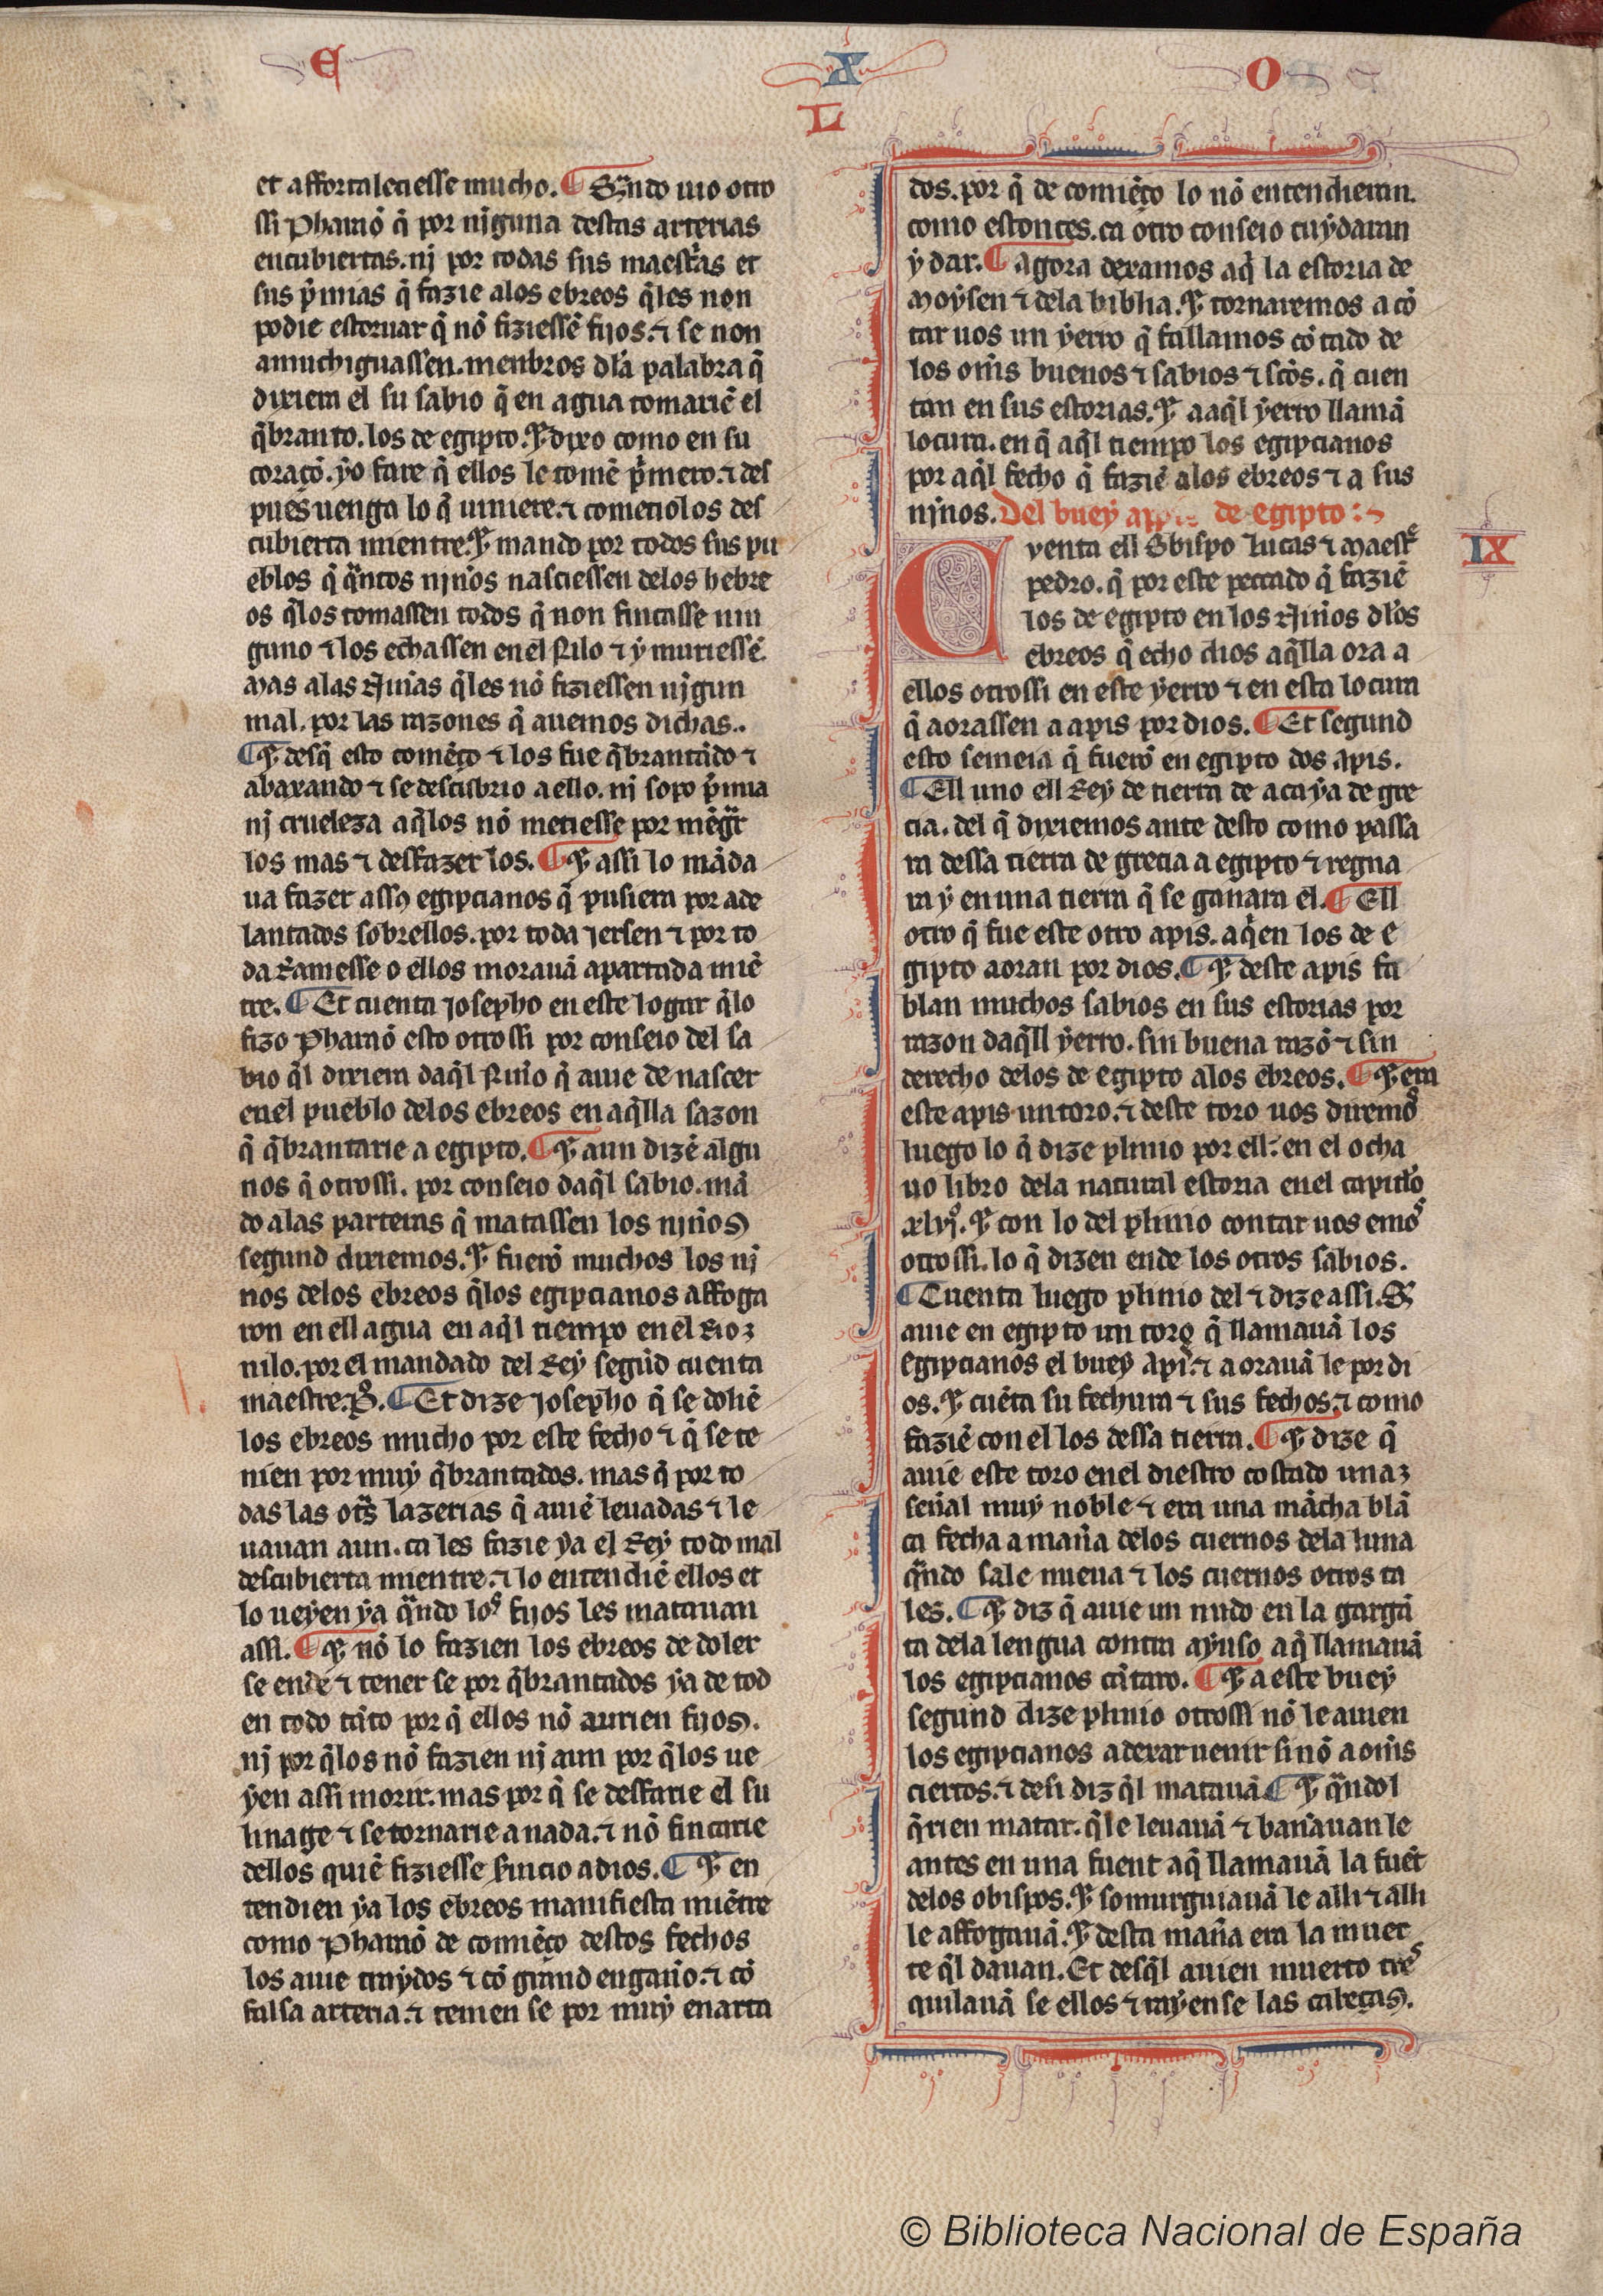 E X O
L
et affortaleciesse mucho. ¶ Q̃ndo uio otro
ssi Pharaõ q̃ por nĩguna destas arterias
encubiertas. nj por todas sus maestr̃as et
sus p̃mias q̃ fazie alos ebreos q̃les non
podie estoruar q̃ nõ fiziessẽ fijos. ⁊ se non
amuchiguassen. menbros dl̃a palabra q̃
dixiera el su sabio q̃ en agua tomariẽ el
q̃branto. los de egipto. ⁊ dixo como en su
coraçõ. yo fare q̃ ellos le tomẽ p̃mero. ⁊ des
pues uenga lo q̃ uiniere. ⁊ cometiolos des
cubierta mientre. ⁊ mando por todos sus pu
eblos q̃ q̃ntos njños nasciessen delos hebre
os q̃los tomassen todos q̃ non fincasse nin
guno ⁊ los echassen enel Nilo ⁊ y muriessẽ.
Mas alas Niñas q̃les nõ fiziessen nĩgun
mal. por las razones q̃ auemos dichas..
¶ ⁊ desq̃ esto comẽço ⁊ los fue q̃brantãdo ⁊
abaxando ⁊ se descubrio a ello. nj sopo p̃mia
nj crueleza aq̃los nõ metiesse por mẽguar
los mas ⁊ desfazer los. ¶ ⁊ assi lo mãda
ua fazer assos egipcianos q̃ pusiera por ade
lantados sobrellos. por toda Jersen ⁊ por to
da Ramesse o ellos morauã apartada miẽ
tre. ¶ Et cuenta Josepho en este logar q̃lo
fizo Pharaõ esto otrossi por conseio del sa
bio q̃l dixiera daq̃l Niño q̃ auie de nascer
enel pueblo delos ebreos en aq̃lla sazon
q̃ q̃brantarie a egipto. ¶ ⁊ aun dizẽ algu
nos q̃ otrossi. por conseio daq̃l sabio. mã
do alas parteras q̃ matassen los njños
segund dixiemos. ⁊ fuerõ muchos los nj
nos delos ebreos q̃los egipcianos affoga
ron en ell agua en aq̃l tiempo enel Rio
nilo. por el mandado del Rey segũd cuenta
maestre. P̃o. ¶ Et dize Josepho q̃ se doliẽ
los ebreos mucho por este fecho ⁊ q̃ se te
nien por muy q̃brantados. mas q̃ por to
das las otr̃s lazerias q̃ auiẽ leuadas ⁊ le
uauan aun. ca les fazie ya el Rey todo mal
descubierta mientre. ⁊ lo entendiẽ ellos et
lo ueyen ya q̃ndo los fijos les matauan
assi. ¶ ⁊ nõ lo fazien los ebreos de doler
se ende ⁊ tener se por q̃brantados ya de tod
en todo tãto por q̃ ellos nõ aurien fijos.
nj por q̃los nõ fazien nj aun por q̃los ue
yen assi morir. mas por q̃ se desfarie el su
linage ⁊ se tornarie a nada. ⁊ nõ fincarie
dellos quiẽ fiziesse Seruicio a dios. ¶ ⁊ en
tendien ya los ebreos manifiesta miẽtre
como Pharaõ de comiẽço destos fechos
los auie traydos ⁊ cõ grand engaño. ⁊ cõ
falsa arteria. ⁊ tenien se por muy enarta
dos. por q̃ de comiẽço lo nõ entendieran.
como estonces. ca otro conseio cuydaran
y dar. ¶ Agora dexamos aq̃ la estoria de
Moysen ⁊ dela biblia. ⁊ tornaremos a cõ
tar uos un yerro q̃ fallamos cõtado de
los om̃s buenos ⁊ sabios ⁊ sc̃os. q̃ cuen
tan en sus estorias. ⁊ a aq̃l yerro llamã
locura. en q̃ aq̃l tiempo los egipcianos
por aq̃l fecho q̃ faziẽ alos ebreos ⁊ a sus
njnos. Del buey apis de egipto :~
IX
Cventa ell Obispo lucas ⁊ Maestre
pedro. q̃ por este peccado q̃ faziẽ
los de egipto en los Niños dl̃os
ebreos q̃ echo dios aq̃lla ora a
ellos otrossi en este yerro ⁊ en esta locura
q̃ aorassen a apis por dios. ¶ Et segund
esto semeia q̃ fuerõ en egipto dos apis.
¶ Ell uno ell Rey de tierra de acaya de gre
cia. del q̃ dixiemos ante desto como passa
ra dessa tierra de grecia a egipto ⁊ regna
ra y en una tierra q̃ se ganara el. ¶ Ell
otro q̃ fue este otro apis. aq̃en los de e
gipto aorau por dios. ¶ ⁊ deste apis fa
blan muchos sabios en sus estorias por
razon daq̃ll yerro. sin buena razõ ⁊ sin
derecho delos de egipto alos ebreos. ¶ ⁊ era
este apis un toro. ⁊ deste toro uos diremos
luego lo q̃ dize plinio por ell. en el ocha
uo libro dela natural estoria enel capitl̃o
xlvj̊. ⁊ con lo del plinio contar uos emos
otrossi. lo q̃ dizen ende los otros sabios.
¶ Cuenta luego plinio del ⁊ dize assi. Q̃
auie en egipto un toro q̃ llamauã los
egipcianos el buey Apis. ⁊ aorauã le por di
os. ⁊ cuẽta su fechura ⁊ sus fechos. ⁊ como
faziẽ con el los dessa tierra. ¶ ⁊ dize q̃
auie este toro enel diestro costado una
señal muy noble ⁊ era una mãcha blã
ca fecha a maña delos cuernos dela luna
q̃ndo sale nueua ⁊ los cuernos otros ta
les. ¶ ⁊ diz q̃ auie un nudo en la gargã
ta dela lengua contra ayuso aq̃ llamauã
los egipcianos cãtaro. ¶ ⁊ a este buey
segund dize plinio otrossi nõ le auien
los egipcianos a dexar ueuir si nõ a om̃s
ciertos. ⁊ desi diz q̃l matauã. ¶ ⁊ q̃ndol
q̃rien matar. q̃le leuauã ⁊ bañauan le
antes en una fuent aq̃ llamauã la fuẽt
delos obispos. ⁊ somurguiauã le alli ⁊ alli
le affogauã. ⁊ desta maña era la muer
te q̃l dauan. Et desq̃l auien muerto tres
quilauã se ellos ⁊ rayen se las cabeças.
© Biblioteca Nacional de España